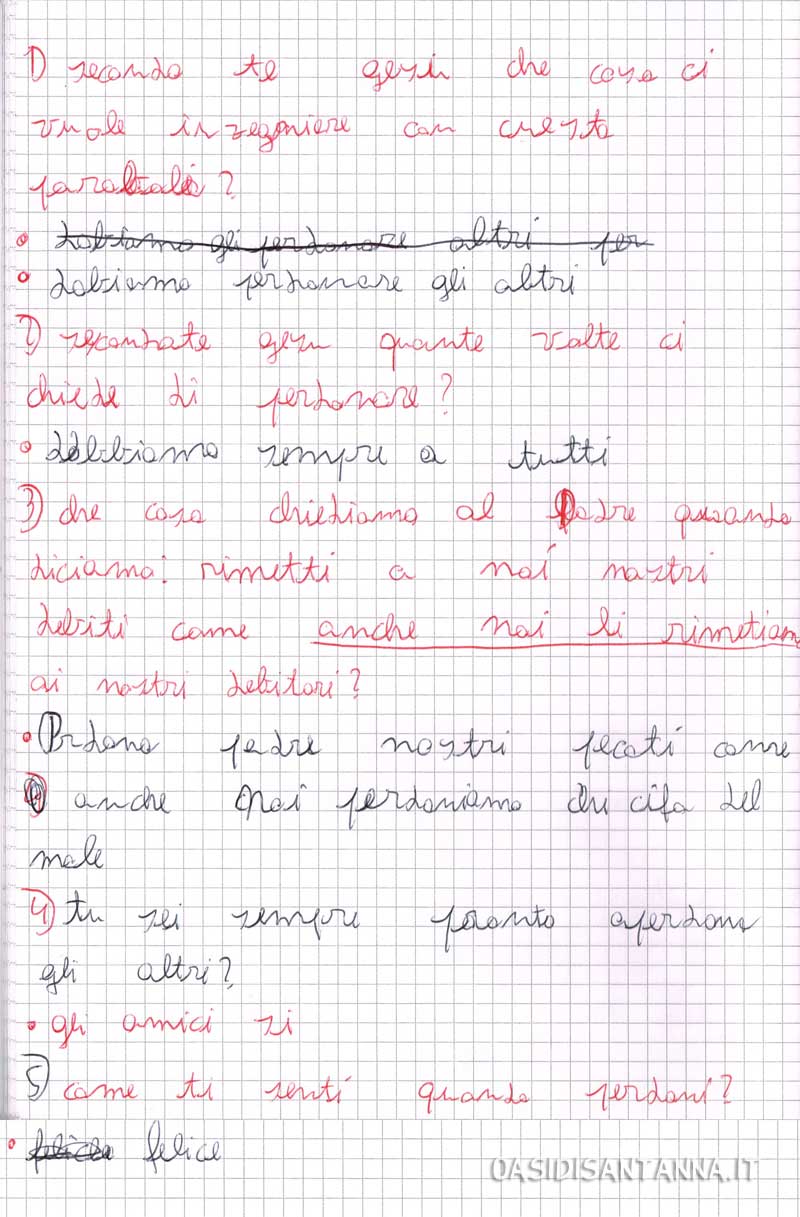 1) secondo te gesù che cosa ci
vuole inzegniere con cuesta
parabola?
dobiamo gli perdonare altri per
dobiamo perdonare gli altri
2) secondote gesu quante volte ci
chiede di perdonare?
dobbiamo sempre a tutti
3) che cosa chiediamo al Padre quando
diciamo: rimetti a noi nostri
debiti come anche noi li rimetiamo
ai nostri debitori?
Prdona padre nostri pecati come
anche noi perdoniamo chi cifa del
male
4) tu sei sempre pronto aperdona
gli altri?
gli amici si
5) come ti senti quando perdoni?
felice
OASIDISANTANNA.IT